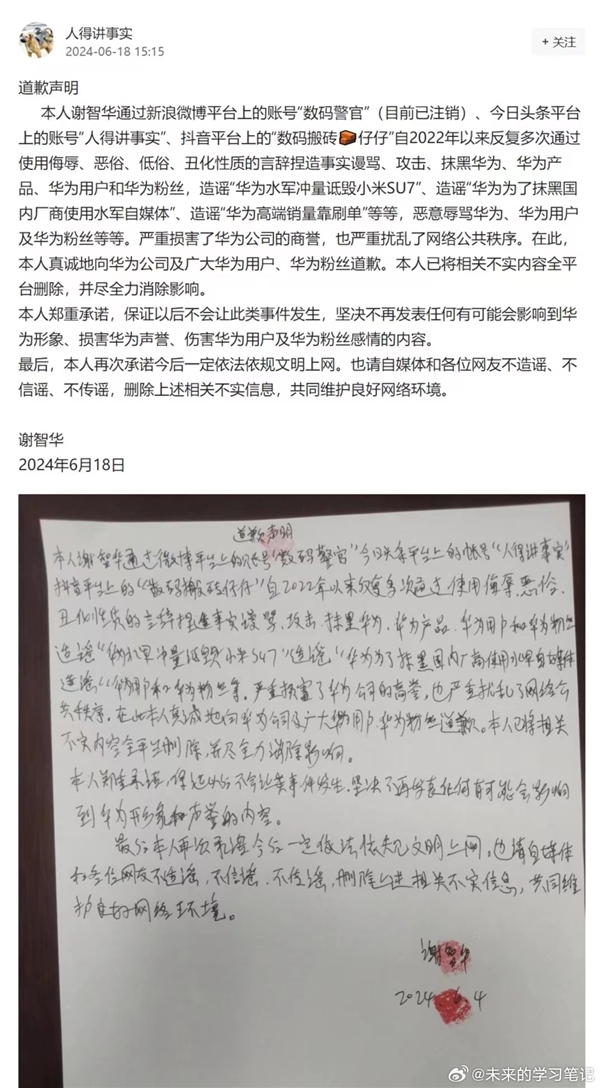 人得讲事实
2024-06-18 15:15
+ 关注
道歉声明
本人谢智华通过新浪微博平台上的账号“数码警官”（目前已注销）、今日头条平台
上的账号“人得讲事实”、抖音平台上的“数码搬砖🧱仔仔”自2022年以来反复多次通过
使用侮辱、恶俗、低俗、丑化性质的言辞捏造事实谩骂、攻击、抹黑华为、华为产
品、华为用户和华为粉丝，造谣“华为水军冲量诋毁小米SU7”、造谣“华为为了抹黑国
内厂商使用水军自媒体”、造谣“华为高端销量靠刷单”等等，恶意辱骂华为、华为用户
及华为粉丝等等。严重损害了华为公司的商誉，也严重扰乱了网络公共秩序。在此，
本人真诚地向华为公司及广大华为用户、华为粉丝道歉。本人已将相关不实内容全平
台删除，并尽全力消除影响。
本人郑重承诺，保证以后不会让此类事件发生，坚决不再发表任何有可能会影响到华
为形象、损害华为声誉、伤害华为用户及华为粉丝感情的内容。
最后，本人再次承诺今后一定依法依规文明上网。也请自媒体和各位网友不造谣、不
信谣、不传谣，删除上述相关不实信息，共同维护良好网络环境。
谢智华
2024年6月18日
道歉声明
本人谢智华通过微博平台上的账号“数码警官”今日头条平台上的帐号“人得讲事实”
抖音平台上的“数码搬砖仔仔”自2022年以来反复多次通过使用侮辱恶俗、
丑化性质的言辞捏造事实谩骂、攻击、抹黑华为、华为产品、华为用户和华为粉丝
造谣“华为水军冲量诋毁小米SU7”造谣“华为为了抹黑国内厂商使用水军自媒体
造谣“华为用户和华为粉丝等，严重损害了华为公司的商誉，也严重扰乱了网络公
共秩序，在此本人真诚地向华为公司及广大华为用户华为粉丝道歉。本人已将相关
不实内容全平台删除，并尽全力消除影响。
本人郑重承诺，保证以后不会让类事件发生，坚决不再发表任何有可能会影响
到华为形象和声誉的内容。
最后本人再次承诺今后一定依法依规文明上网，也请自媒体
和各位网友不造谣，不信谣、不传谣，删除上述相关不实信息，共同维
护良好网络环境。
谢智华
2024 6 4
@未来的学习笔记